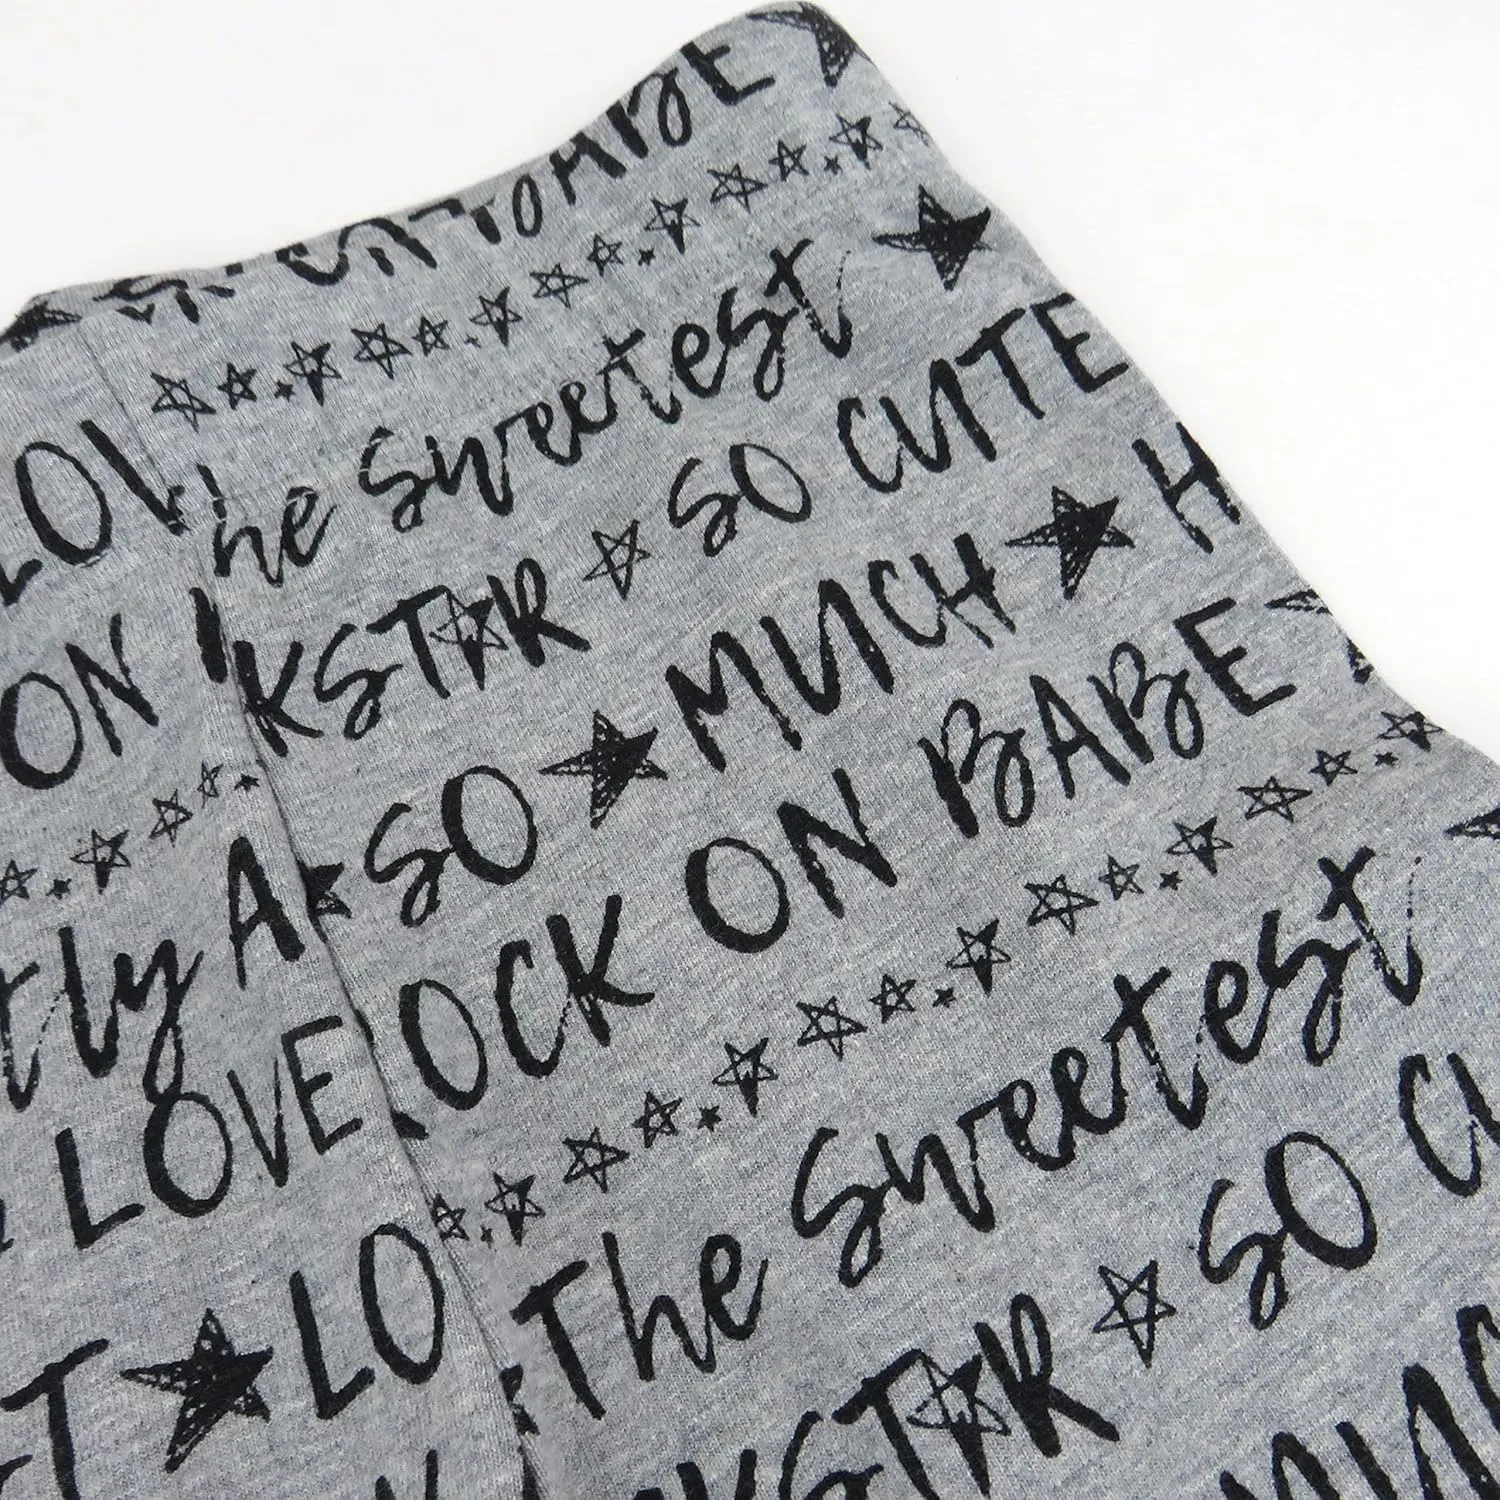 BABE
LOV
he sweetest
ON
KSTAR SO CUTE
SO MUCH H
tly A
OCK ON BABE
LOVE
The sweetest
LO
KSTAR SO CU